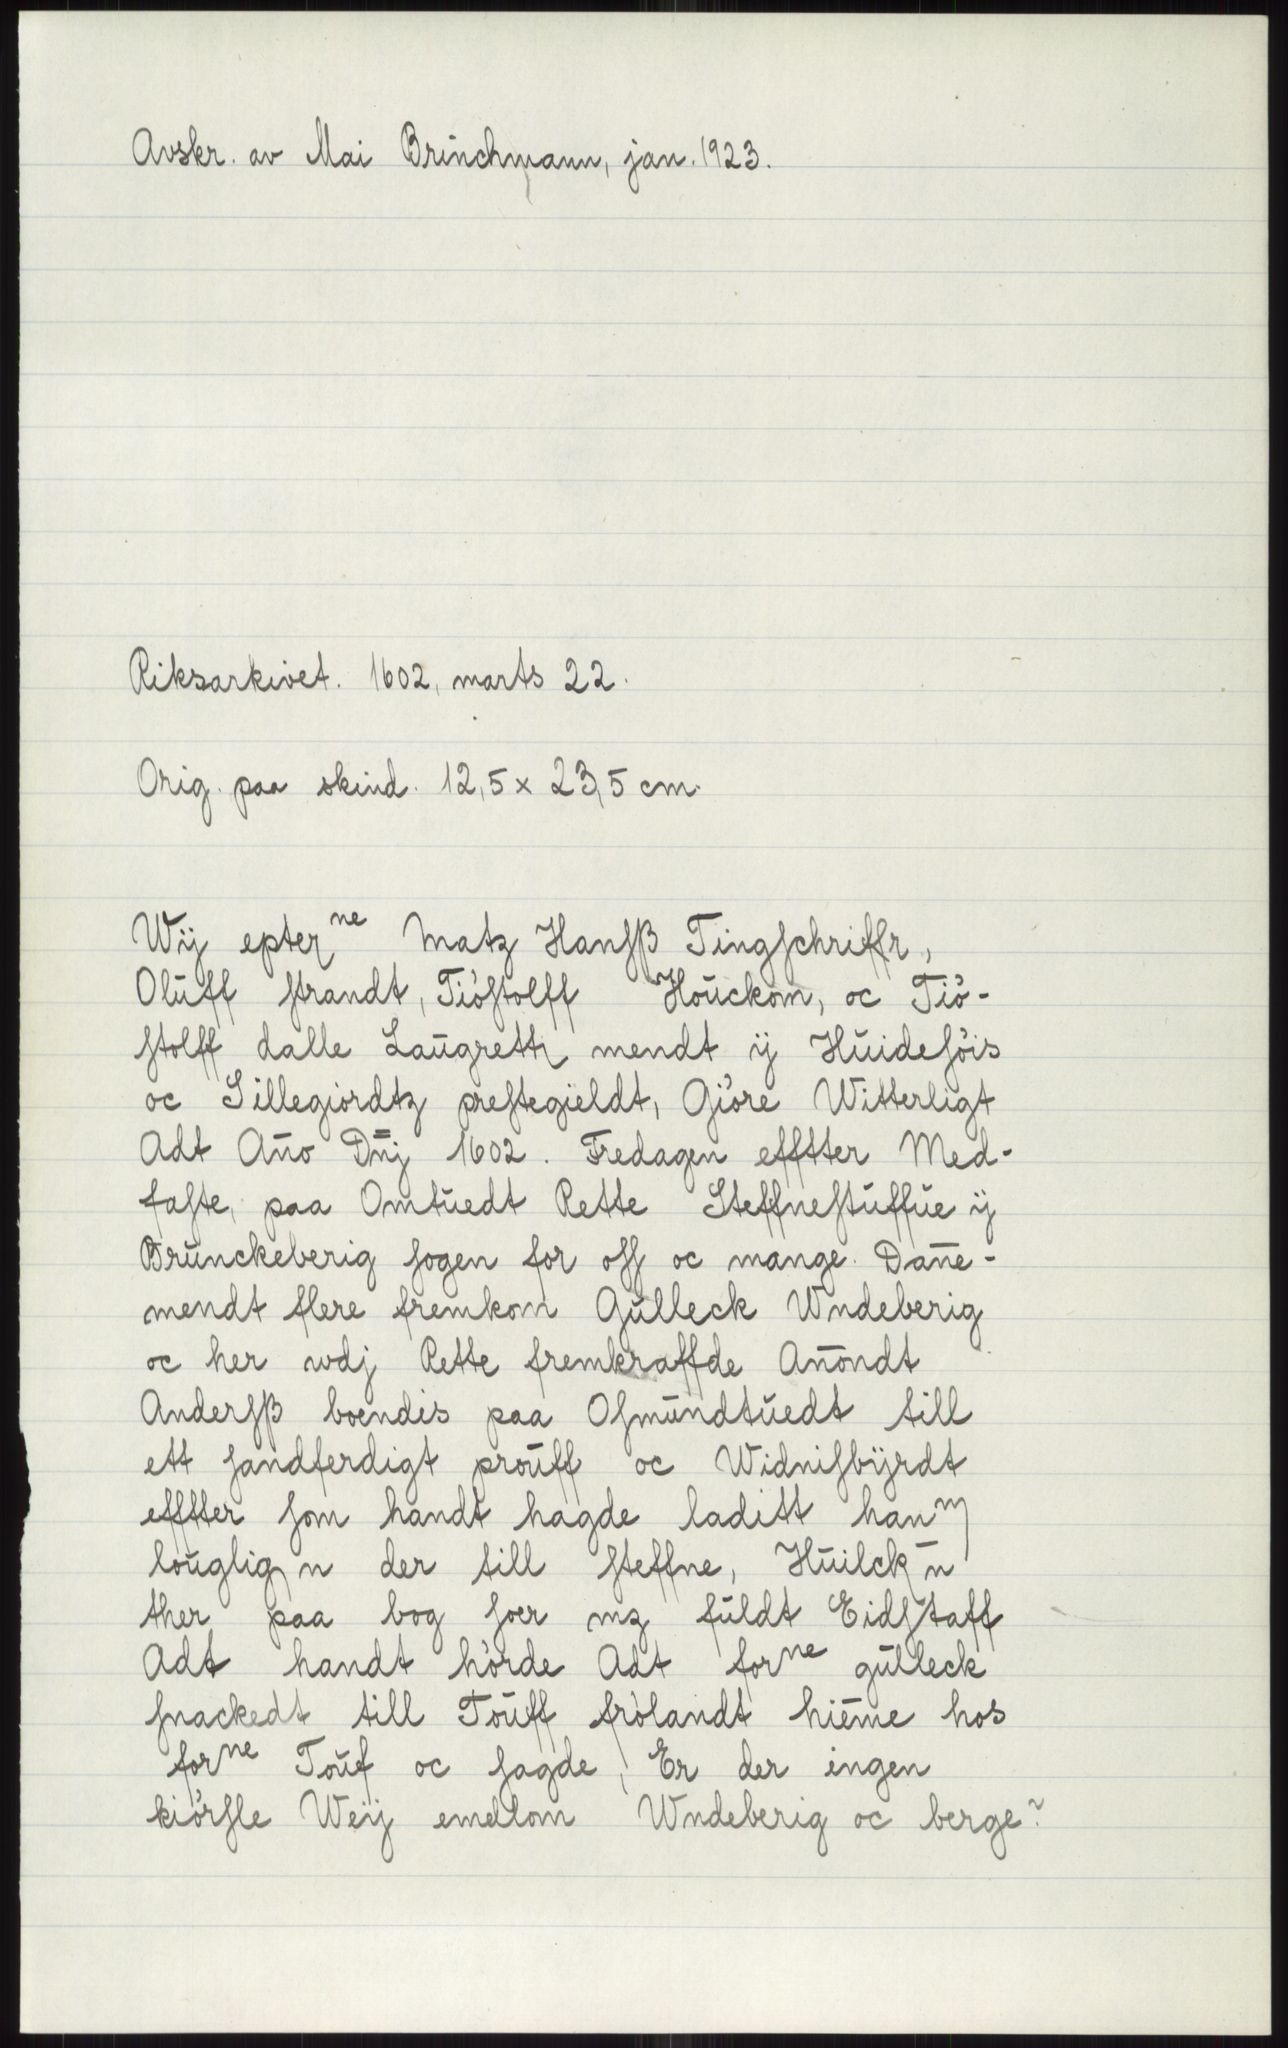 Avskr. av Mai Brinchmann, jan. 1923.
Riksarkivet. 1602, marts 22.
Orig. paa skind. 12,5 x 23,5 cm.
Wij epter<sup>ne</sup> Matz Hanſß Tingſchriffr,
Olŭff ſtrandt, Tiöſtolff Hoŭckom, oc Tiö-
ſtolff dalle Laŭgrettz mendt ÿ Hŭideſöis
oc Sillegiordtz preſtegieldt, Giöre Witterligt
Adt An̄o Dn̄j 1602. Fredagen efftter Med-
faſte, paa Omtŭedt Rette Steffneſtŭffŭe ÿ
Brŭnckeberig ſogen for oſſ oc mange Dan̄e-
mendt flere fremkom Gŭlleck Wndeberig
oc her wdj Rette fremkraffde An̄ondt
Anderſß boendis paa Oſmŭndtŭedt till
ett ſandferdigt proŭff oc Widniſbÿrdt
efftter ſom handt hagde laditt han<sup>m</sup>
loŭglign der till ſteffne, Hŭilckn̄
ther paa bog ſoer mz fŭldt Eidſtaff
Adt handt hörde Adt for<sup>ne</sup> gŭlleck
ſnackedt till Toŭff frölandt hiem̄e hos
for<sup>ne</sup> Toŭf oc ſagde, Er der ingen
kiörſle Weÿ emellom Wndeberig oc berge?